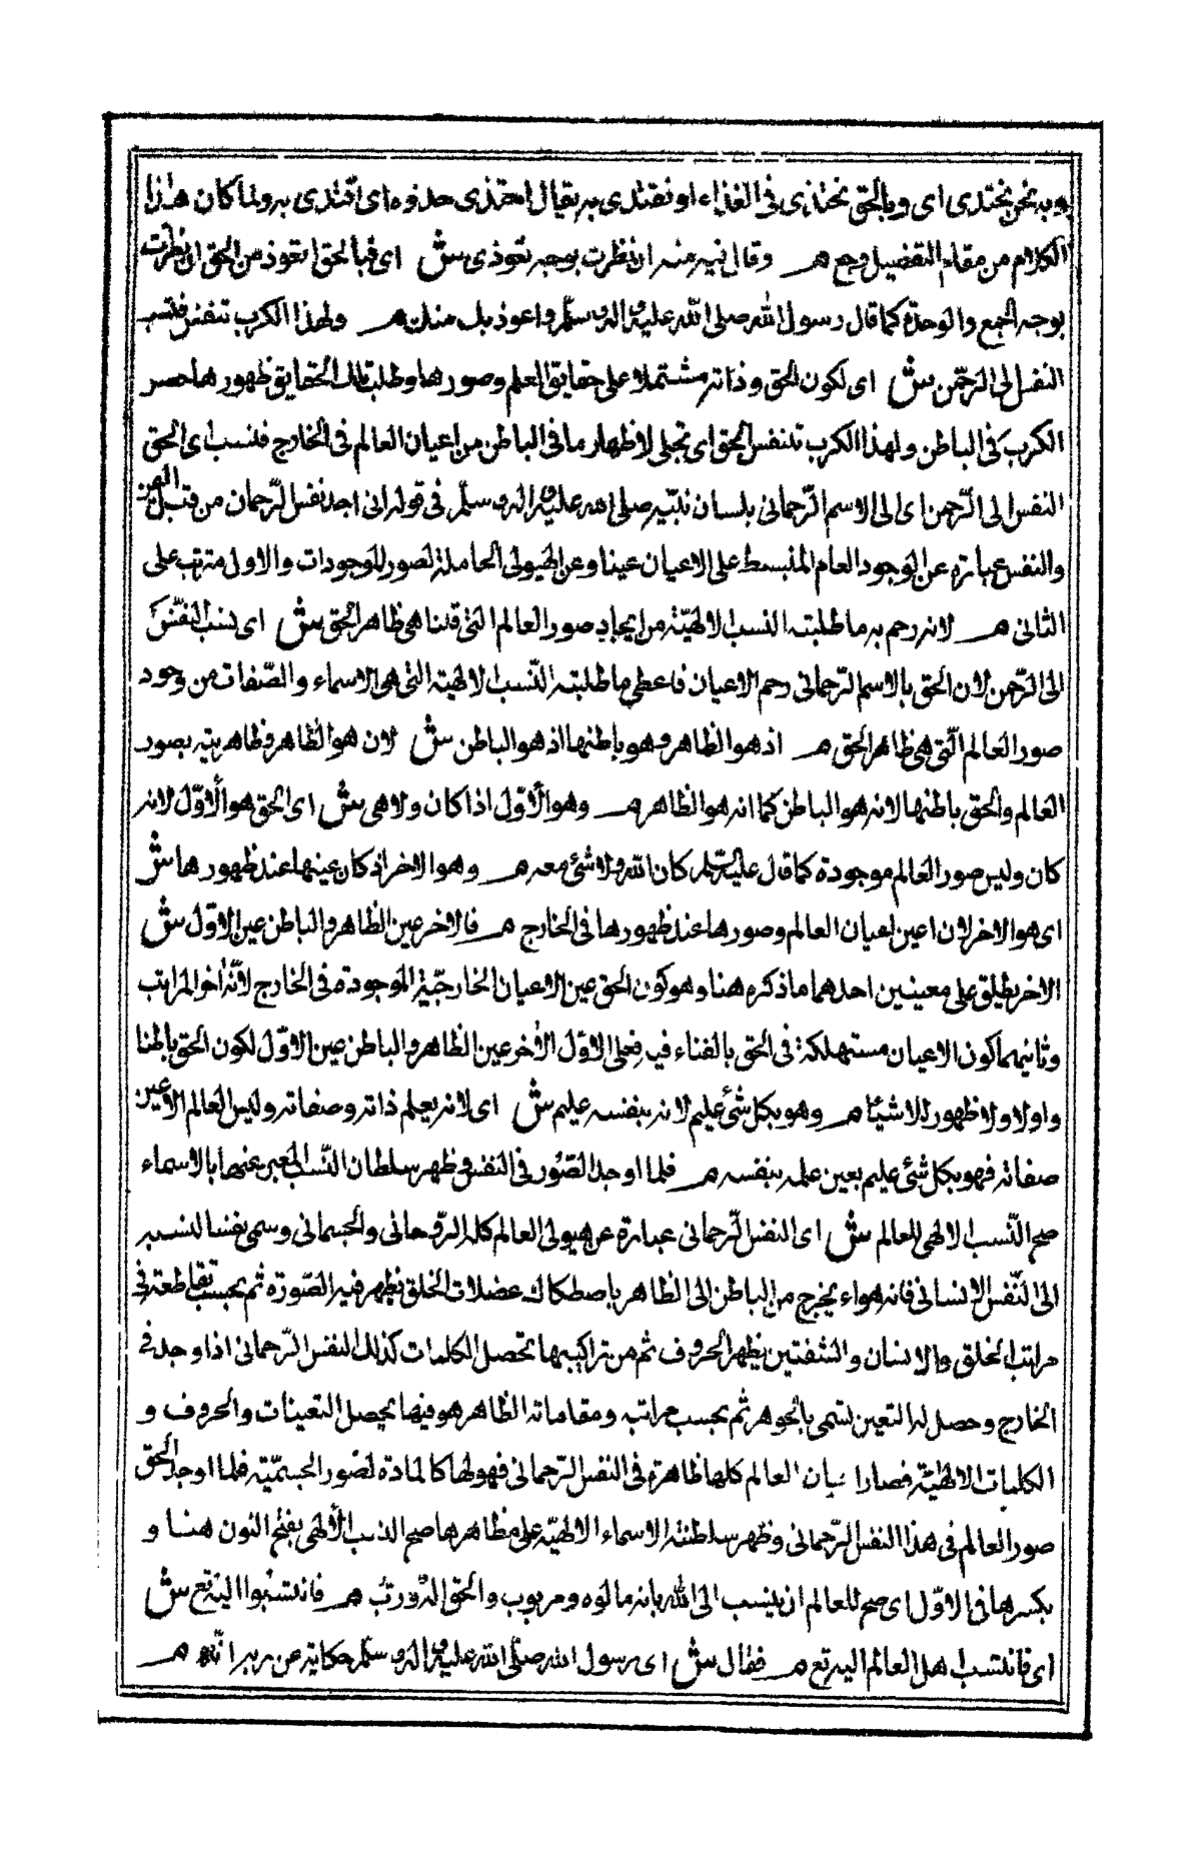 وبه نحن نحتذى اى وبالحق نحتذى فى الغذاء او نقتدى به يقال احتذى حذوه اى اقتدى به ولما كان هذا
الكلام من مقام التفضيل رجع م وقال نبه منه ان نظرت بوجه تعوذى ش اى فبالحق اتعوذ من الحق ان نظرت
بوجه الجمع والوحدة كما قال رسول الله صلى الله عليه واله وسلم واعوذ بك منك م ولهذا الكرب تنفس فنسب
النفس الى الرحمن ش اى لكون الحق وذاته مشتملا على حقايق العلم وصورها وطلب تلك الحقايق ظهورها حسر
الكرب فى الباطن ولهذا الكرب تنفس الحق اى تجلى لاظهار ما فى الباطن من اعيان العالم فى الخارج فنسب اى الحق
النفس الى الرّحمن اى الى الاسم الرّحمانى بلسان نبيّه صلى الله عليه واله وسلّم فى قوله انى اجد نفس الرّحمان من قبل اليمن
والنفس عبارة عن الوجود العام المنبسط على الاعيان عينا وعن الهيولى الحاملة لصور الموجودات والاول مترتب على
الثانى م لانه رحم به ما طلبته النسب الالهيّة من ايجاد صور العالم التى قلنا هى ظاهر الحق ش اى نسب النفس
الى الرّحمن لان الحق بالاسم الرّحمانى رحم الاعيان فاعطى ما طلبته النّسب الالهيّة التى هى الاسماء والصّفات من وجود
صور العالم الّتى هى ظاهر الحق م اذ هو الظاهر وهو باطنها اذ هو الباطن ش لان هو الظاهر وظاهريته بصور
العالم والحق باطنها لانه هو الباطن كما انه هو الظاهر م وهو الاوّل اذا كان ولا هى ش اى الحق هو الاوّل لانه
كان وليس صور العالم موجودة كما قال عليه السّلم كان الله ولا شئ معه م وهو الاخر اذ كان عينها عند ظهورها ش
اى هو الاخر لان اعين اعيان العالم وصورها عند ظهورها فى الخارج م فالاخر عين الظاهر والباطن عين الاوّل ش
الاخر يطلق على معينين احدهما ما ذكره هنا وهو كون الحق عين الاعيان الخارجيّة الموجودة فى الخارج لانّه اخر المراتب
وثانيهما كون الاعيان مستهلكة فى الحق بالفناء فيه فعلى الاوّل الاخر عين الظاهر والباطن عين الاوّل لكون الحق باطنا
واولا ولا ظهور للاشياء م وهو بكل شئ عليم لانه بنفسه عليم ش اى لانه يعلم ذاته وصفاته وليس العالم الا عين
صفاته فهو بكل شئ عليم بعين علمه بنفسه م فلما اوجد الصّور فى النفس وظهر سلطان النّسب المعبر عنها بالاسماء
صح النّسب الالهى للعالم ش اى النفس الرّحمانى عبارة عن هيولى العالم كله الرّوحانى والجسمانى وسمى نفسا لنسبه
الى النّفس الانسانى فانه هواء يخرج من الباطن الى الظاهر باصطكاك عضلات الخلق يظهر فيه الصّورة ثم بحسب تقاطعه فى
مراتب الخلق والانسان والشفتين يظهر الحروف ثم من تراكيبها تحصل الكلمات كذلك النفس الرّحمانى اذا وجد فى
الخارج وحصل له التعين يسمى بالجوهر ثم بحسب مراتبه ومقاماته الظاهر هو فيها يحصل التعينات والحروف و
الكلمات الالهيّة فصار اعيان العالم كلها ظاهرة فى النفس الرّحمانى فهو لها كالمادة لصور الجسميّة فلما اوجد الحق
صور العالم فى هذا النفس الرّحمانى وظهر سلطنة الاسماء الالهيّة على مظاهرها صح النسب الالهى بفتح النون هنا و
بكسرها فى الاوّل اى صح للعالم ان ينسب الى الله بانه مالوه ومربوب والحق اله ورب م فانتسبوا اليه تع ش
اى فانتسب اهل العالم اليه تع م فقال ش اى رسول الله صلّى الله عليه واله وسلّم حكاية عن ربه انّه م